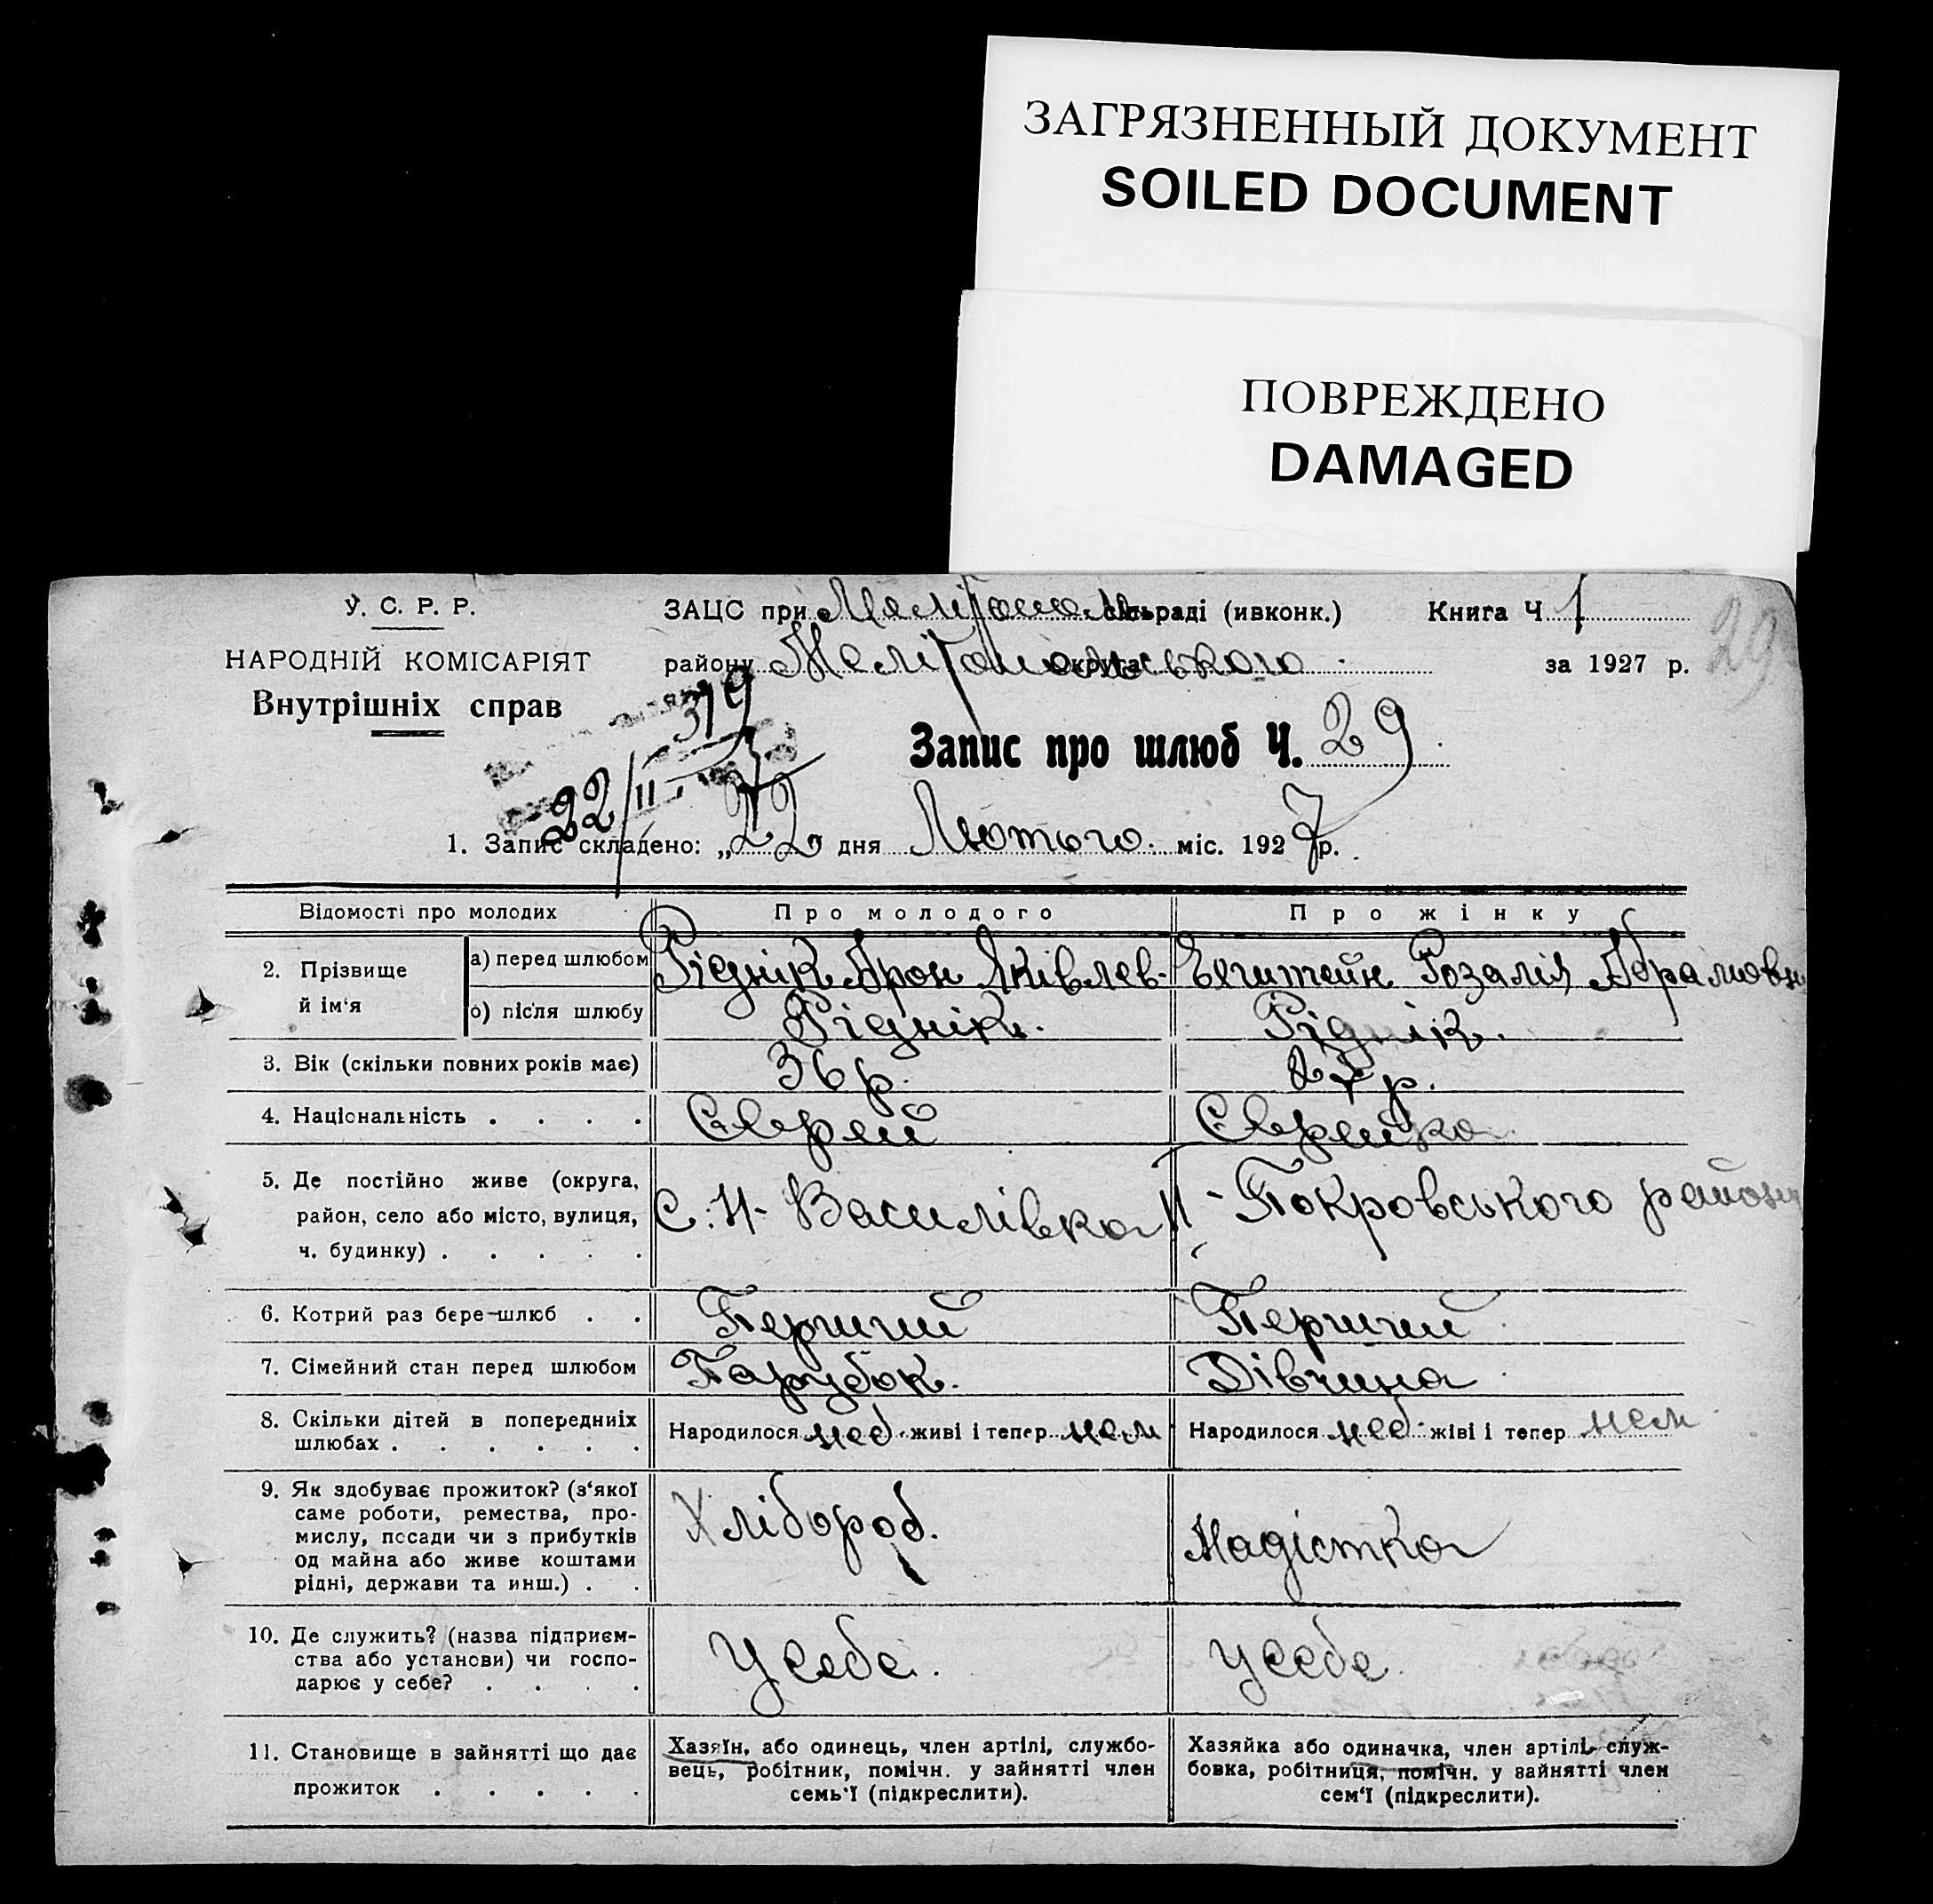 ЗАГРЯЗНЕННЫЙ ДОКУМЕНТ
SOILED DOCUMENT
ПОВРЕЖДЕНО
DAMAGED
У. С. Р. Р.
НАРОДНІЙ КОМІСАРІЯТ
Внутрішніх справ
ЗАЦС при сільраді (ивконк.) Книга Ч 1
29
району Мелітопольського округа за 1927 р.
319
22/II
Запис про шлюб Ч. 29
1. Запис складено: „22" дня Лютого міс. 1927 р.
Відомості про молодих Про молодого Про жінку
2. Прізвище й ім'я
а) перед шлюбом Піднік Арон Яківлев- Розалія Абрамовн
б) після шлюбу Рідник. Ріднік.
3. Вік (скільки повних років має) 36 р. 27 р.
4. Національність . . . . Єврей Єврейка
5. Де постійно живе (округа,
район, село або місто, вулиця,
ч. будинку) . . . . .
С. Н- Василівка Н-Покровського району
6. Котрий раз бере-шлюб . . Перший Перший
7. Сімейний стан перед шлюбом Парубок. Дівчина
8. Скільки дітей в попередниіх
шлюбах . . . . . .
Народилося живі і тепер нем Народилося живі і тепер нем
9. Як здобуває прожиток? (з'якої
саме роботи, ремества, про-
мислу, посади чи з прибутків
од майна або живе коштами
рідні, держави та инш.) . .
Хлібороб. Модістка
10. Де служить? (назва підприєм-
ства або установи) чи госпо-
дарює у себе? . . . .
У себе. У себе
11. Становище в зайнятті що дає
прожиток . . . . .
Хазяїн, або одинець, член артілі, службо-
вець, робітник, помічн. у зайнятті член
семь'ї (підкреслити).
Хазяйка або одиначка, член артілі, служ-
бовка, робітниця, помічн. у зайнятті член
сем'ї (підкреслити).